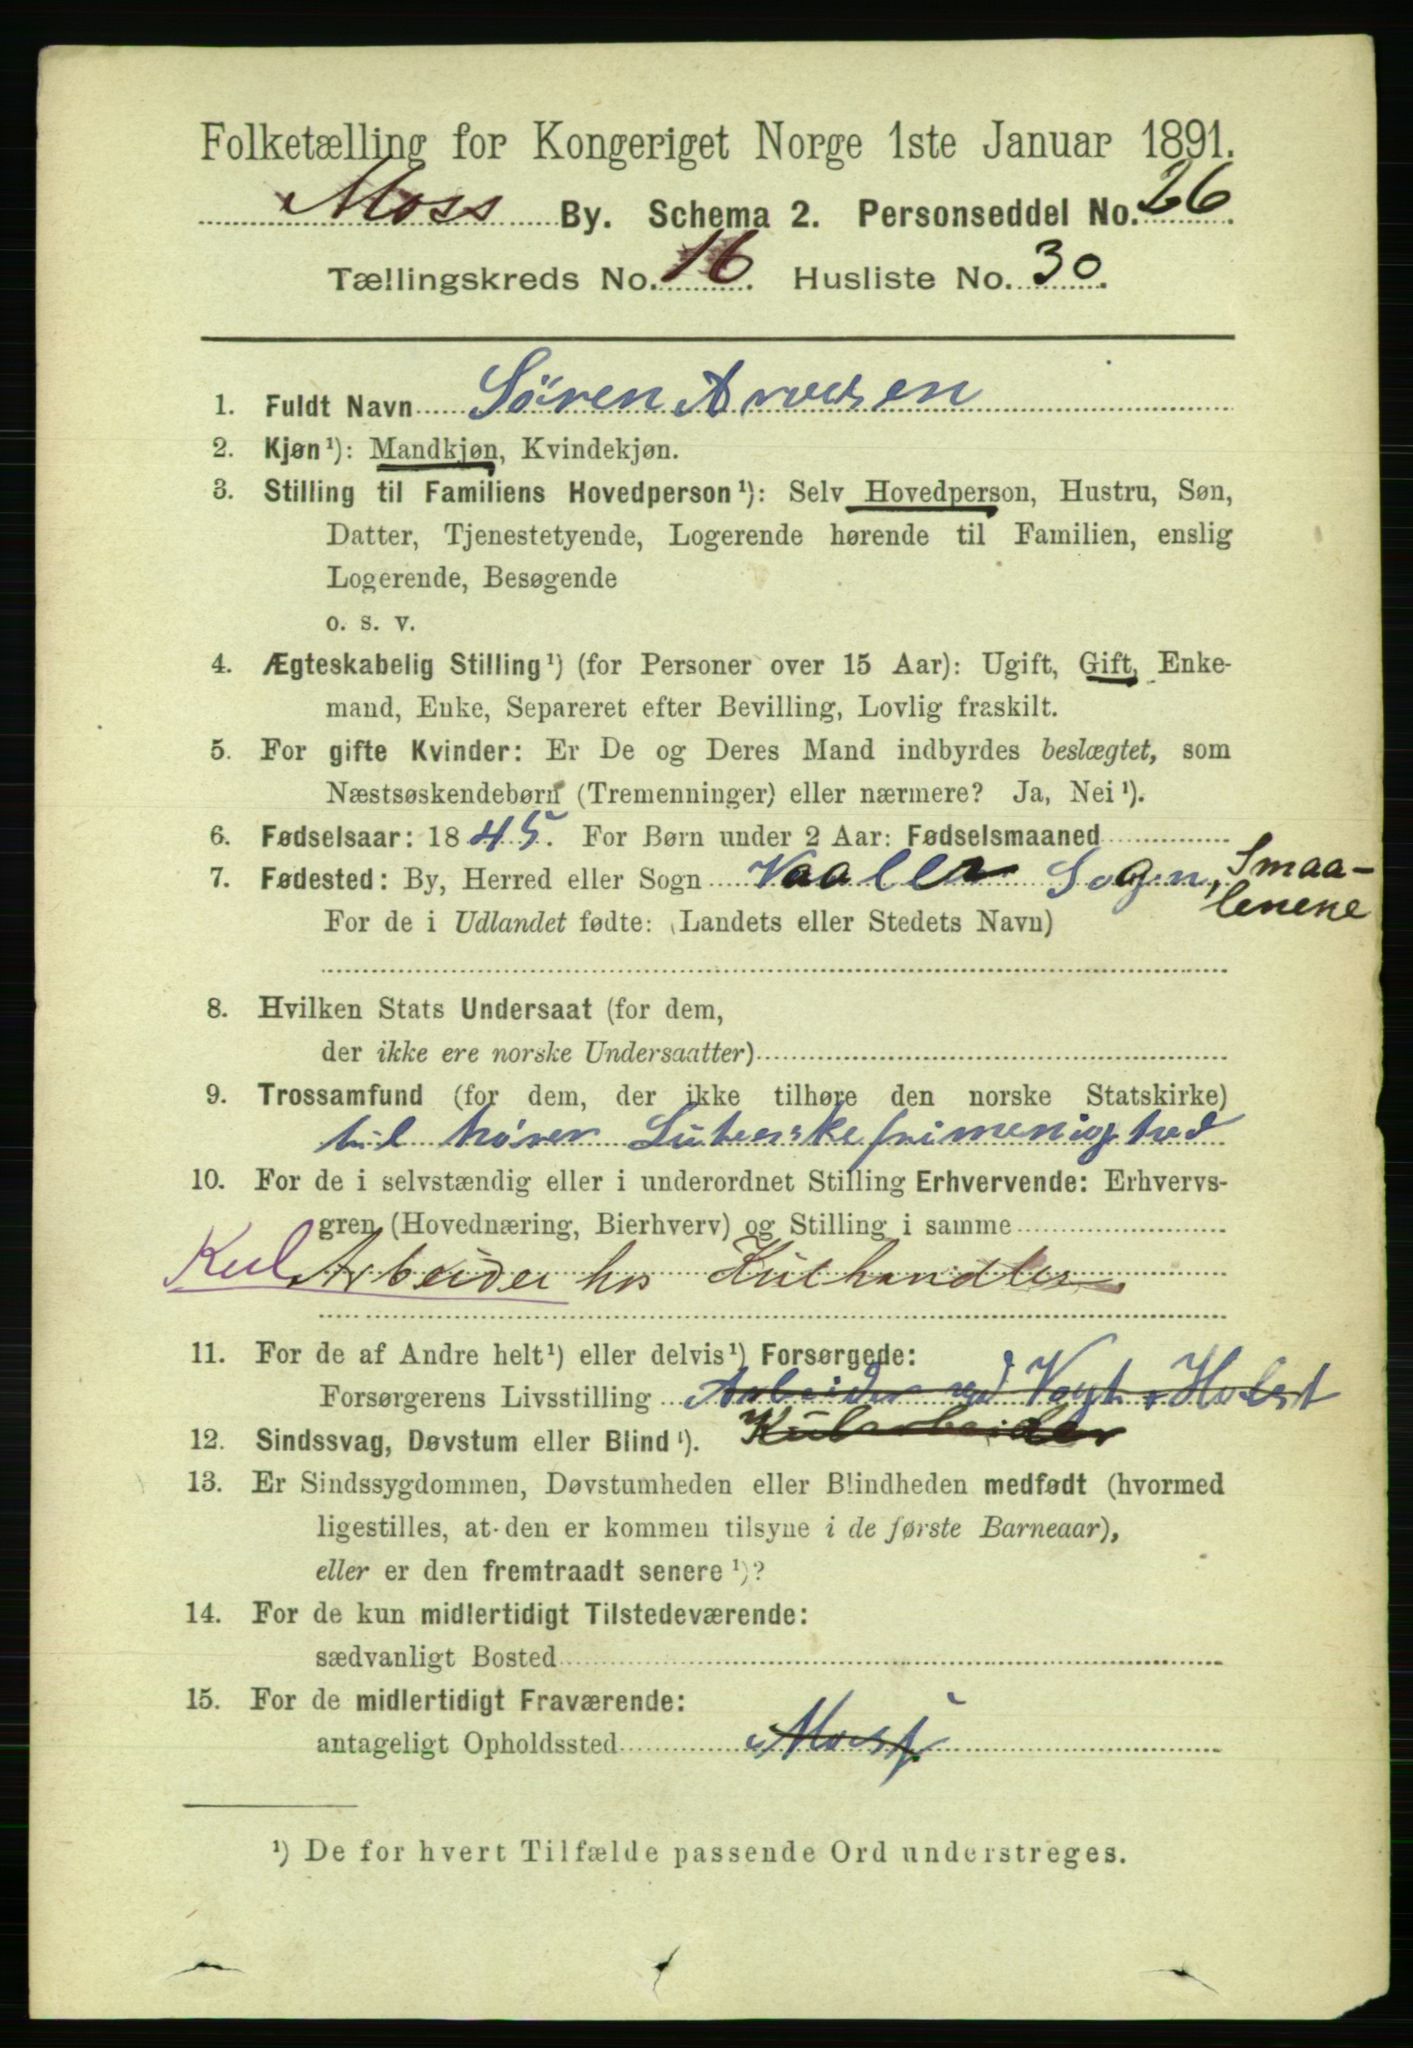 Folketælling for Kongeriget Norge 1ste Januar 1891.
Moss By. Schema 2. Personseddel No. 26.
Tællingskreds No. 16. Husliste No. 30.
1. Fuldt Navn Sören Arvesen
2. Kjøn¹): Mandkjøn, Kvindekjøn.
3. Stilling til Familiens Hovedperson¹): Selv Hovedperson, Hustru, Søn,
Datter, Tjenestetyende, Logerende hørende til Familien, enslig
Logerende, Besøgende
o. s. v.
4. Ægteskabelig Stilling¹) (for Personer over 15 Aar): Ugift, Gift, Enke-
mand, Enke, Separeret efter Bevilling, Lovlig fraskilt.
5. For gifte Kvinder: Er De og Deres Mand indbyrdes beslægtet, som
Næstsøskendebørn (Tremenninger) eller nærmere? Ja, Nei¹).
6. Fødselsaar: 1845. For Børn under 2 Aar: Fødselsmaaned
7. Fødested: By, Herred eller Sogn Vaaler Sogn, Smaa-
lenene
For de i Udlandet fødte: (Landets eller Stedets Navn)
8. Hvilken Stats Undersaat (for dem,
der ikke ere norske Undersaatter)
9. Trossamfund (for dem, der ikke tilhøre den norske Statskirke)
til hörer Luterske frimenighed
10. For de i selvstændig eller i underordnet Stilling Erhvervende: Erhvervs-
gren (Hovednæring, Bierhverv) og Stilling i samme
Kul Arbeider hos Kulhandler
11. For de af Andre helt¹) eller delvis¹) Forsørgede:
Forsørgerens Livsstilling Arbeider ved Vogt Holst
12. Sindssvag, Døvstum eller Blind¹). Kularbeider
13. Er Sindssygdommen, Døvstumheden eller Blindheden medfødt (hvormed
ligestilles, at den er kommen tilsyne i de første Barneaar),
eller er den fremtraadt senere¹)?
14. For de kun midlertidigt Tilstedeværende:
sædvanligt Bosted
15. For de midlertidigt Fraværende:
antageligt Opholdssted Moss
¹) De for hvert Tilfælde passende Ord understreges.